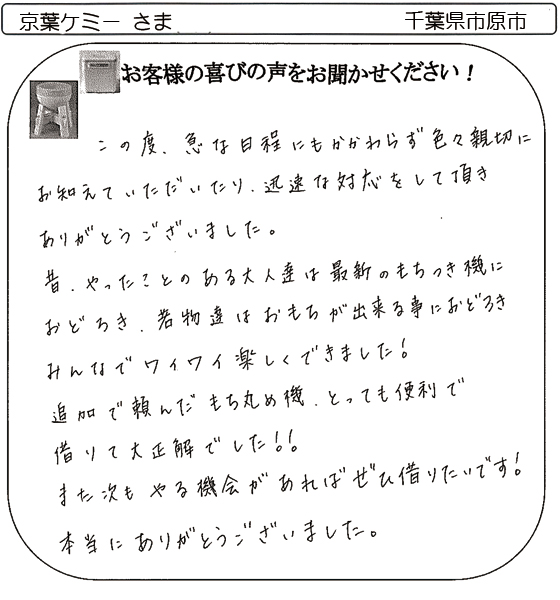 京葉ケミー さま 千葉県市原市
お客様の喜びの声をお聞かせください！
この度、急な日程にもかかわらず色々親切に
お知えていただいたり、迅速な対応をして頂き
ありがとうございました。
昔、やったことのある大人達は最新のもちつき機に
おどろき、若物達はおもちが出来る事におどろき
みんなでワイワイ楽しくできました！
追加で頼んだもち丸め機、とっても便利で
借りて大正解でした！！
また次もやる機会があればぜひ借りたいです！
本当にありがとうございました。